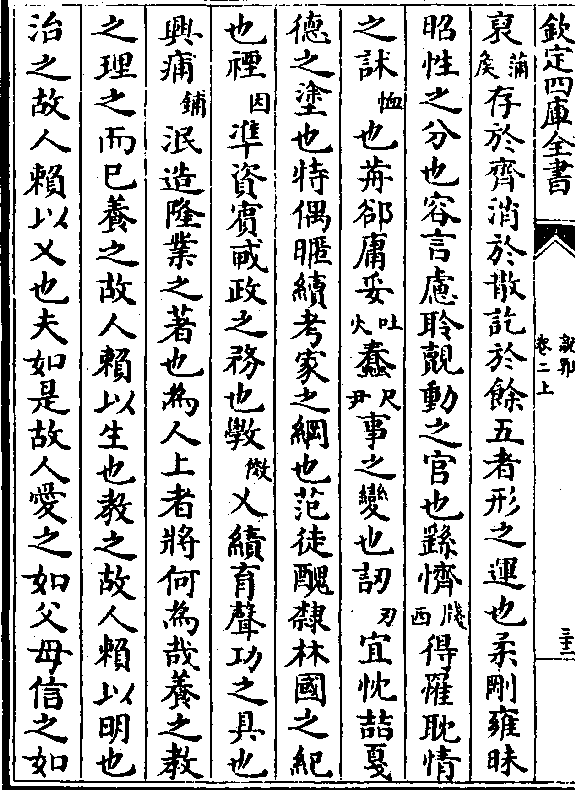 欽定四庫全書
說郛
卷二上
裒蒲矦存於齊消於散訖於餘五者形之運也柔剛雍昧
昭性之分也容言慮聆覿動之官也繇懠牋西得罹耽情
之訹恤也歬郤庸妥吐火蠢尺尹事之變也訒刃宜忱喆戛
德之塗也特偶暱續考家之綱也范徒醜隸林國之紀
也禋因凖資賓戎政之務也斆乂績育聲功之具也
興痡鋪泯造隆業之著也為人上者將何為哉養之教
之理之而已養之故人賴以生也教之故人賴以明也
治之故人賴以乂也夫如是故人愛之如父母信之如